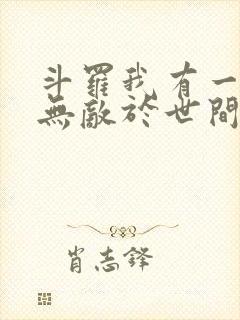 斗羅我有一
無敵於世間
肖志鋒